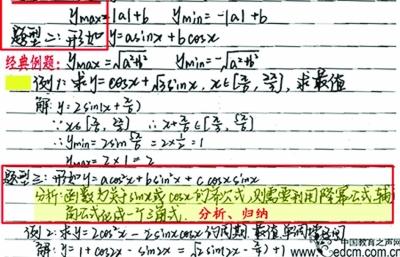 ymax=|a|+b ymin=-|a|+b
题型二:形如y=asinx+bcosx
经典例题: ymax=√a²+b² ymin=-√a²+b²
例1:求y=cosx+√3sinx, x∈[π/6, 2π/3], 求最值
解: y=2sin(x+π/6)
∵x∈[π/6, 2π/3] ∴x+π/6∈[π/3, 5π/6]
∴ymin=2sin5π/6=2×1/2=1
ymax=2×1=2
题型三:形如y=acos²x+bsin²x+ccosxsinx
分析:函数为关于sinx或cosx的齐次式,则需要利用降幂公式,辅
角公式化成一个三角式. 分析、归纳
例2:求y=2cos²x-2sinxcosx的周期.最值.单调增区间
解: y=1+cos2x-sin2x=√2sin(2x-)+1
中国教育之声网
edcm.com